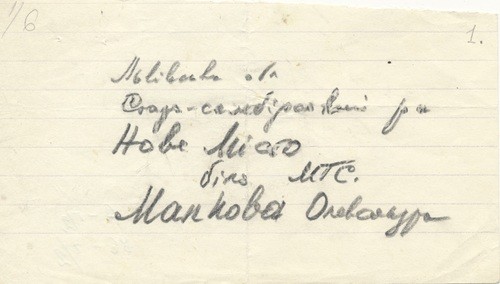 1/6
1.
Львівська обл
Старо-самбірський р-н
Нове Місто
біля МТС.
Маркова Олександра